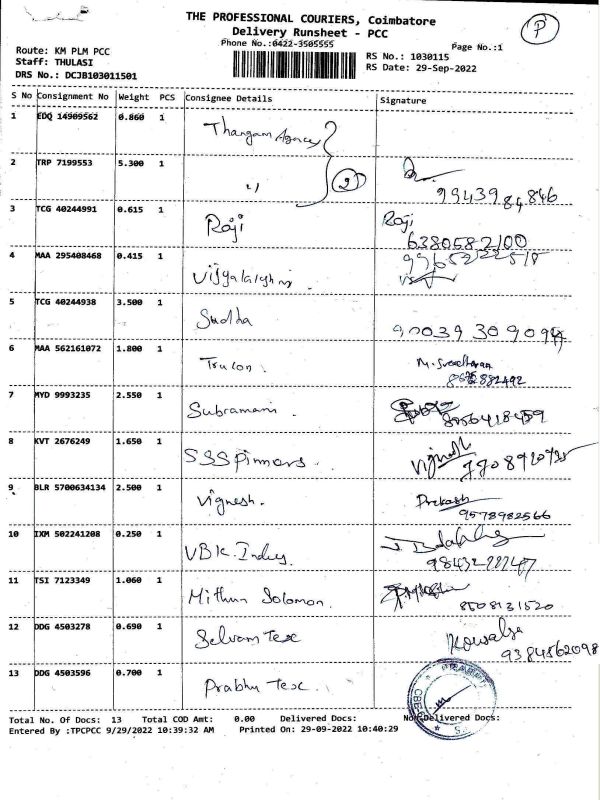 THE PROFESSIONAL COURIERS, Coimbatore
Delivery Runsheet - PCC
Phone No.:0422-3505555
Page No.:1
Route: KM PLM PCC
Staff: THULASI
DRS No.: DCJB103011501
RS No.: 1030115
RS Date: 29-Sep-2022
P
S No Consignment No Weight PCS Consignee Details Signature
1 EDQ 14909562 0.860 1 Thangam Agency
2 TRP 7199553 5.300 1 " 2 9943984846
3 TCG 40244991 0.615 1 Raji Raji 6380582100
4 MAA 295408468 0.415 1
5 TCG 40244938 3.500 1 Sudha
6 MAA 562161072 1.800 1 Trulon. M.
7 MYD 9993235 2.550 1 Subramani.
8 KVT 2676249 1.650 1 SSSpinners. Vignesh
9 BLR 5700634134 2.500 1 Vignesh. Prakash 9578982566
10 IXM 502241208 0.250 1 VBK.
11 TSI 7123349 1.060 1 Mithun Solomon. 8508131520
12 DDG 4503278 0.690 1 Selvam Tex Kowsalya 9384562098
13 DDG 4503596 0.700 1 Prabhu Tex.
Total No. Of Docs: 13 Total COD Amt: 0.00 Delivered Docs: Non Delivered Docs:
Entered By :TPCPCC 9/29/2022 10:39:32 AM Printed On: 29-09-2022 10:40:29